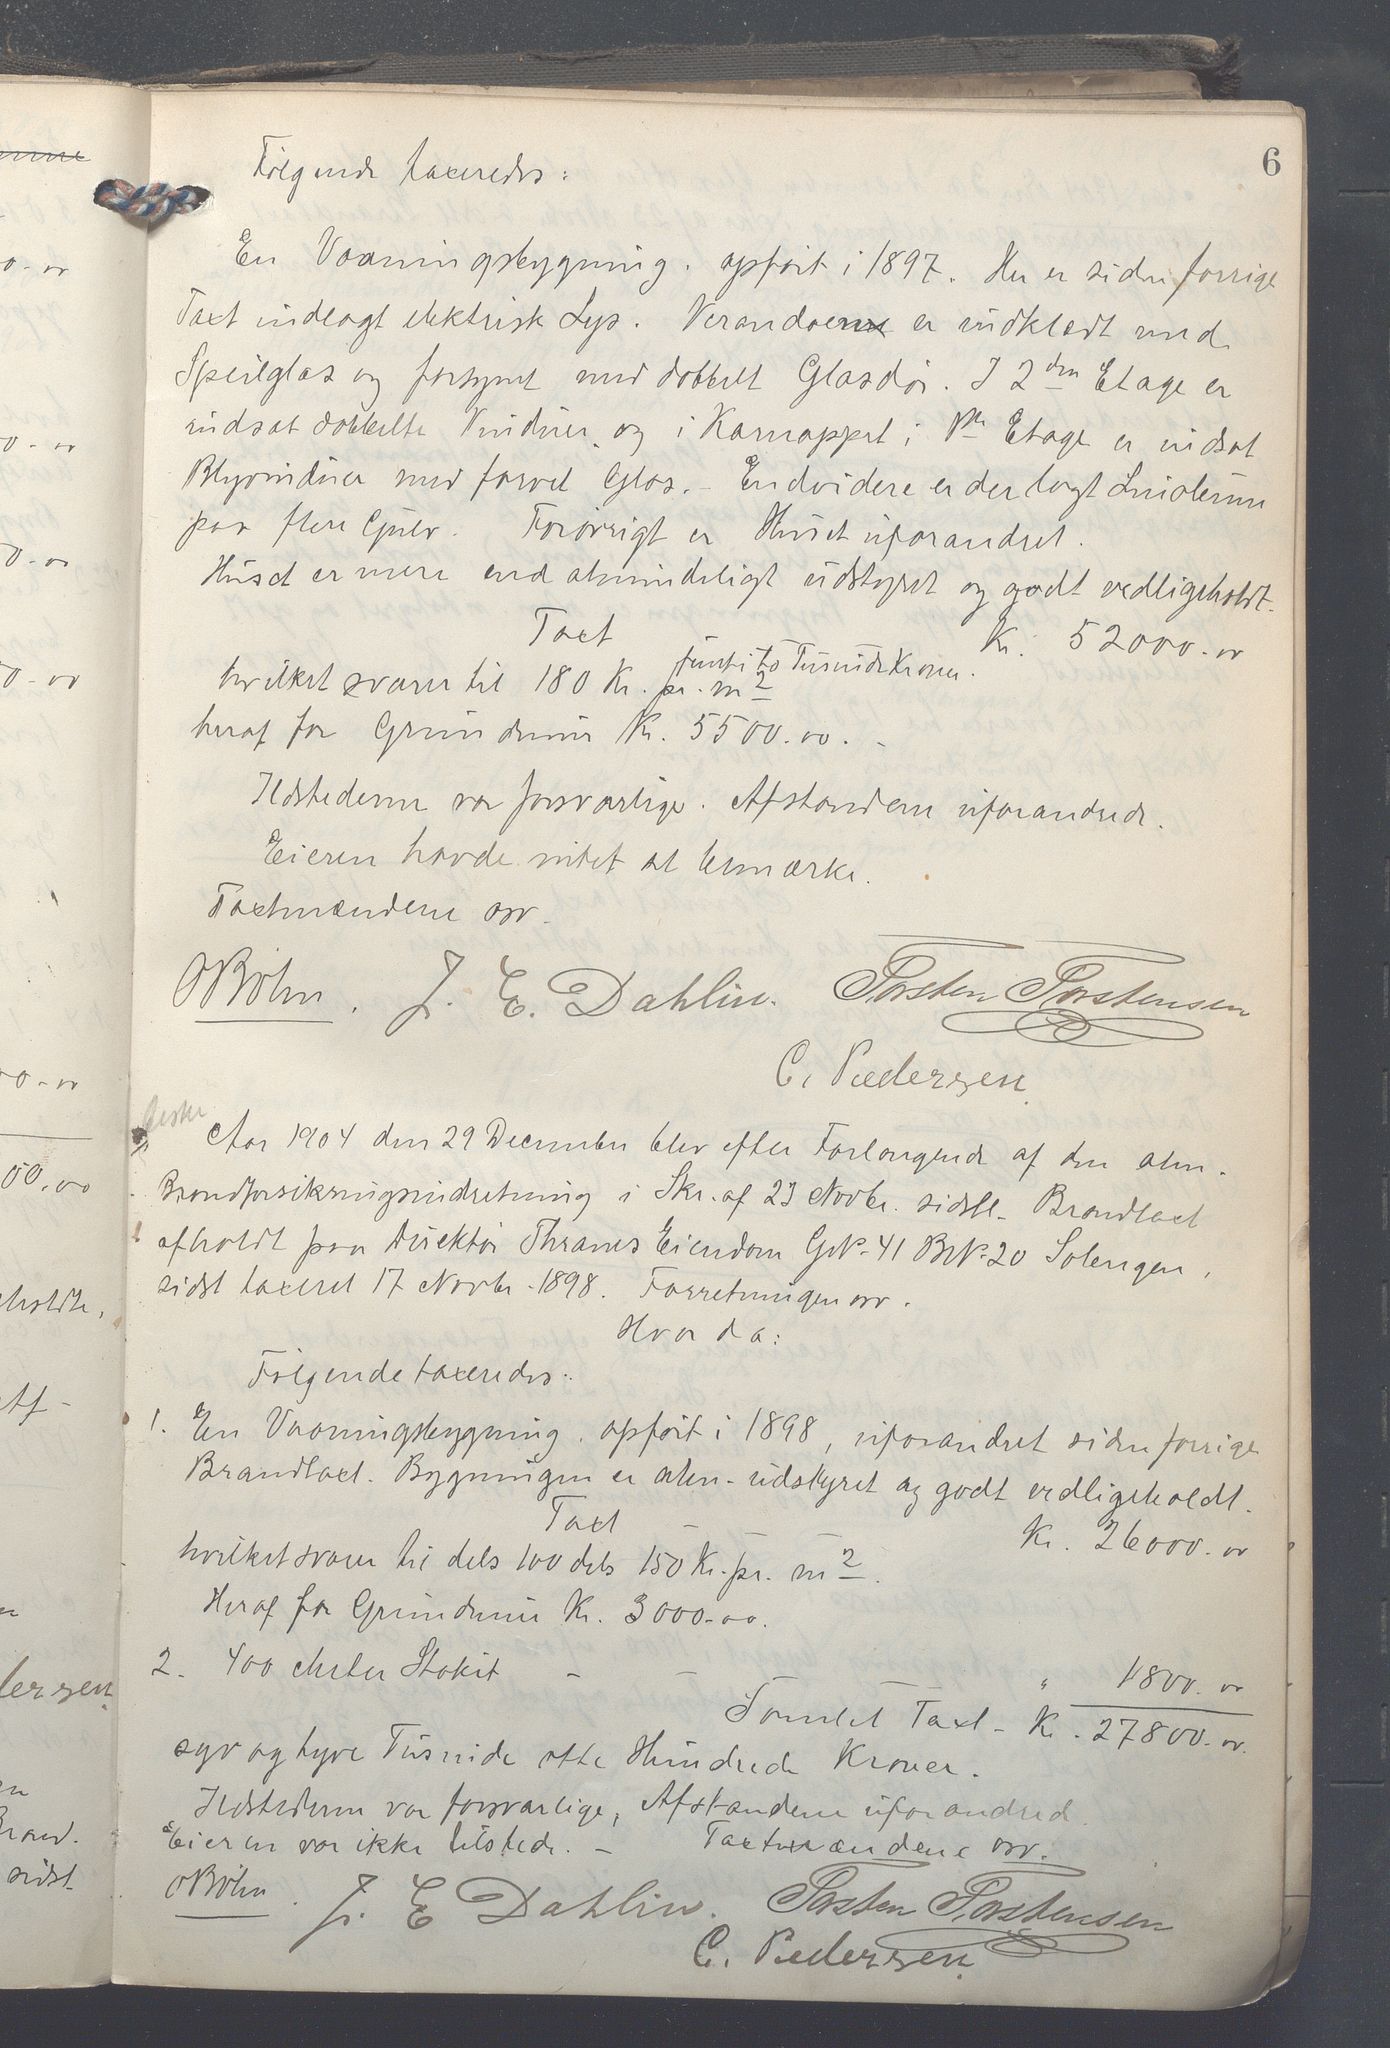 6
Følgende taxeredes:
En Vaaningsbygning, opført i 1897. Her er siden forrige
Taxt indlagt elektrisk Lys. Verandaerne er indklædt med
Speilglas og forsynet med dobbelt Glasdør. I 2den Etage er
indsat dobbelte Vinduer og i Karnappet i 1ste Etage er indsat
Blyvinduer med farvet Glas. – Endvidere er der lagt Linoleum
paa flere Gulv. Forøvrigt er Huset uforandret.
Huset er mere end almindeligt udstyret og godt vedligeholdt.
Taxt Kr. 52000.00
femti to Tusinde Kroner.
hvilket svarer til 180 Kr. pr. m2
heraf for Grundmur Kr. 5500.00. -
Ildstederne var forsvarlige. Afstandene uforandrede.
Eieren havde intet at bemærke.
Taxtmændene osv.
OBöhn. J. E. Dahlin. Torsten Torstensen
C. Pedersen
Aar 1904 den 29 December blev efter Forlangende af den alm.
Brandforsikringsindretning i Skr. af 23 Novbr. sidstl. Brandtaxt
afholdt paa Direktør Thranes Eiendom GNo. 41 BrNo. 20 Solengen,
sidst taxeret 17 Novbr. 1898. Forretningen osv.
Hvor da:
Følgende taxeredes:
1. En Vaaningsbygning, opført i 1898, uforandret siden forrige
Brandtaxt. Bygningen er alm. udstyret og godt vedligeholdt.
Taxt – Kr. 26000.00
hvilket svarer til dels 100 dels 150 Kr. pr. m2.
Heraf for Grundmur Kr. 3000.00.
2. 400 Meter Stakit – – " 1800.00
Samlet Taxt – Kr. 27800.00.
syv og tyve Tusinde otte Hundrede Kroner.
Ildstederne var forsvarlige, Afstandene uforandred
Eieren var ikke tilstede. – Taxtmændene osv.
OBöhn. J. E Dahlin. Torsten Torstensen
C. Pedersen